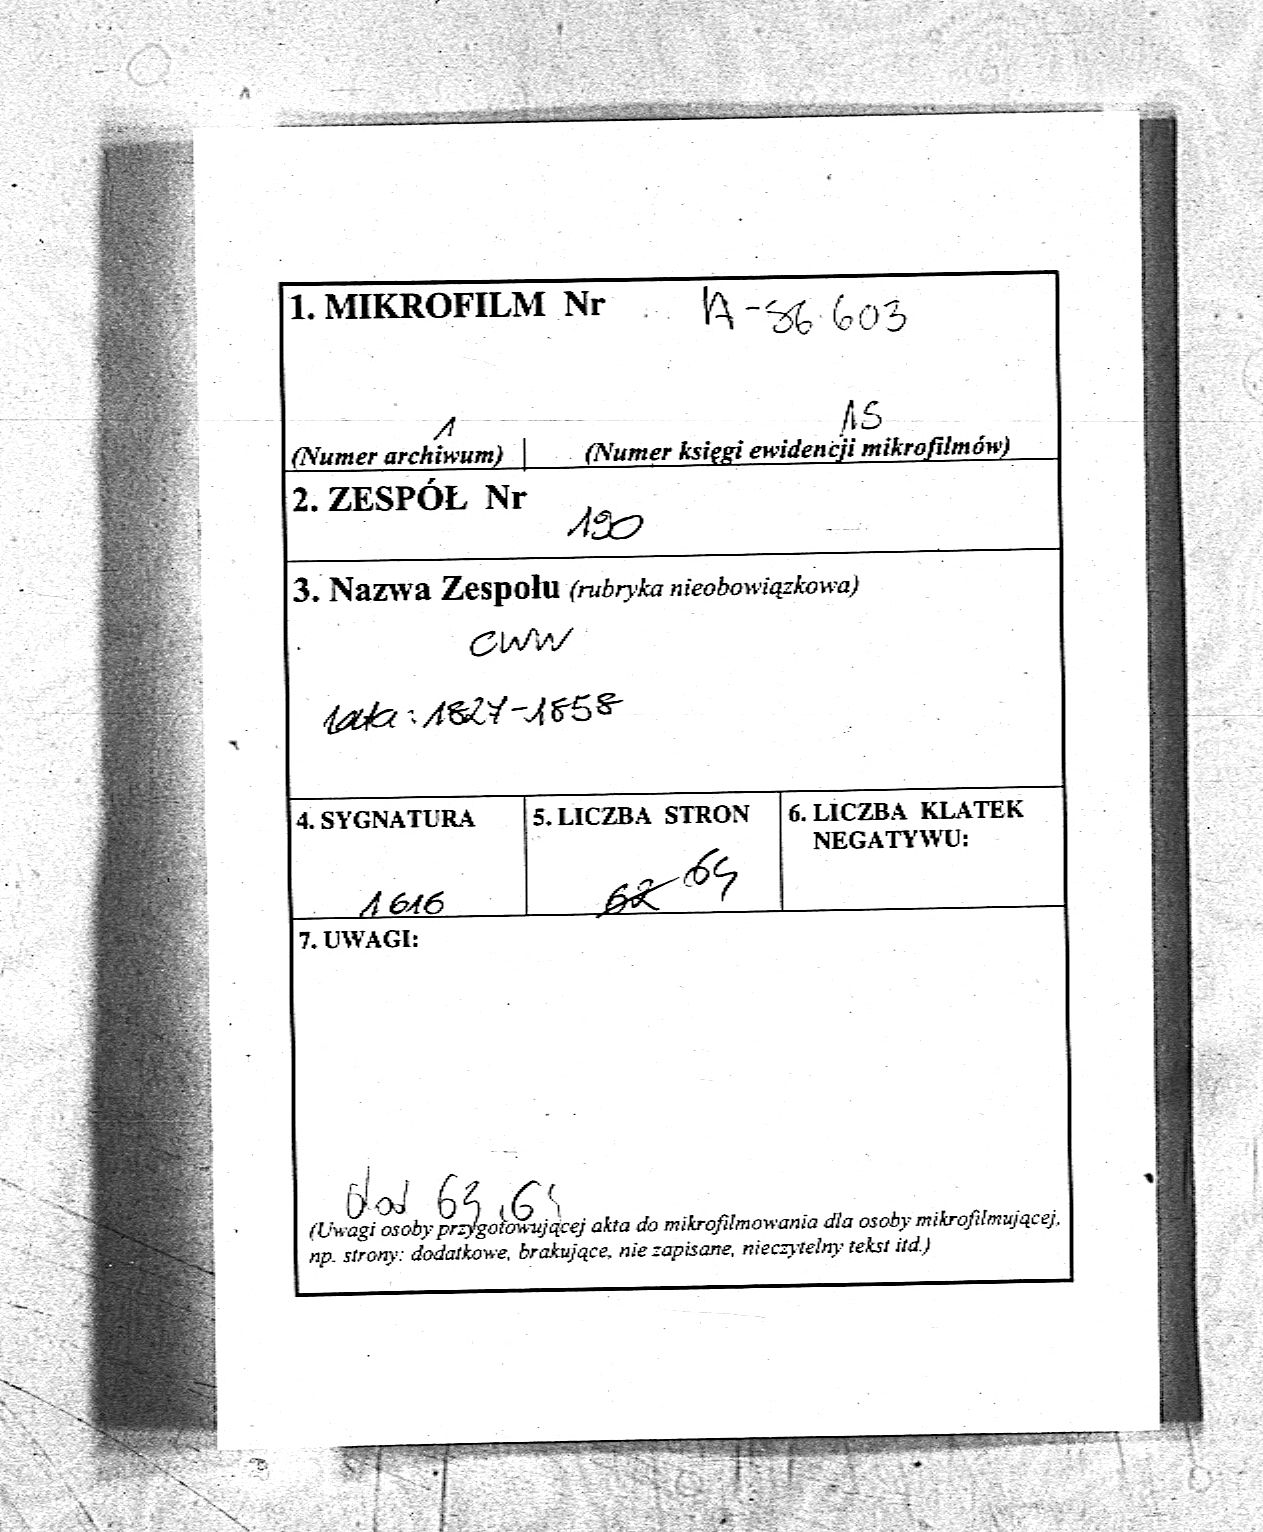 1. MIKROFILM Nr A-36 603
1 15
(Numer archiwum) (Numer księgi ewidencji mikrofilmów)
2. ZESPÓŁ Nr
190
3. Nazwa Zespołu (rubryka nieobowiązkowa)
CWW
lata: 1827-1858
4. SYGNATURA 5. LICZBA STRON 6. LICZBA KLATEK
NEGATYWU:
1616 62 64
7. UWAGI:
dod 63, 64
(Uwagi osoby przygotowującej akta do mikrofilmowania dla osoby mikrofilmującej,
np. strony: dodatkowe, brakujące, nie zapisane, nieczytelny tekst itd.)